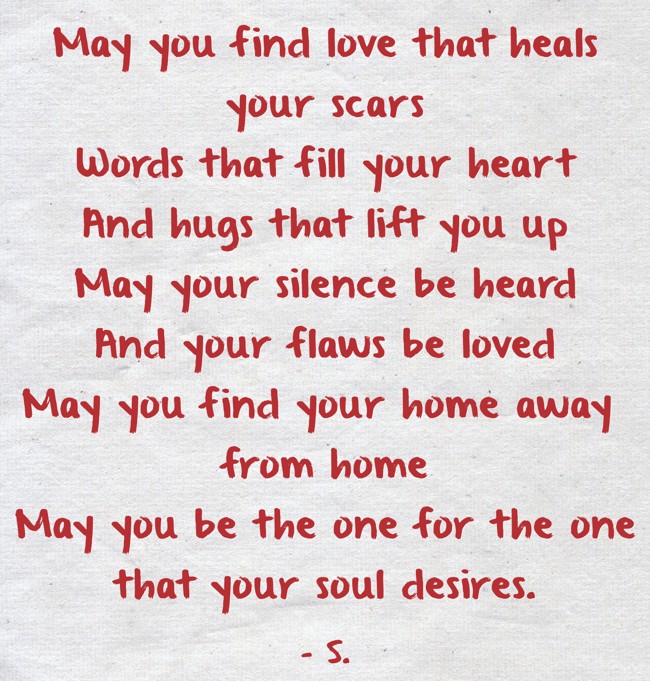 May you find love that heals
your scars
Words that fill your heart
And hugs that lift you up
May your silence be heard
And your flaws be loved
May you find your home away
from home
May you be the one for the one
that your soul desires.
- S.